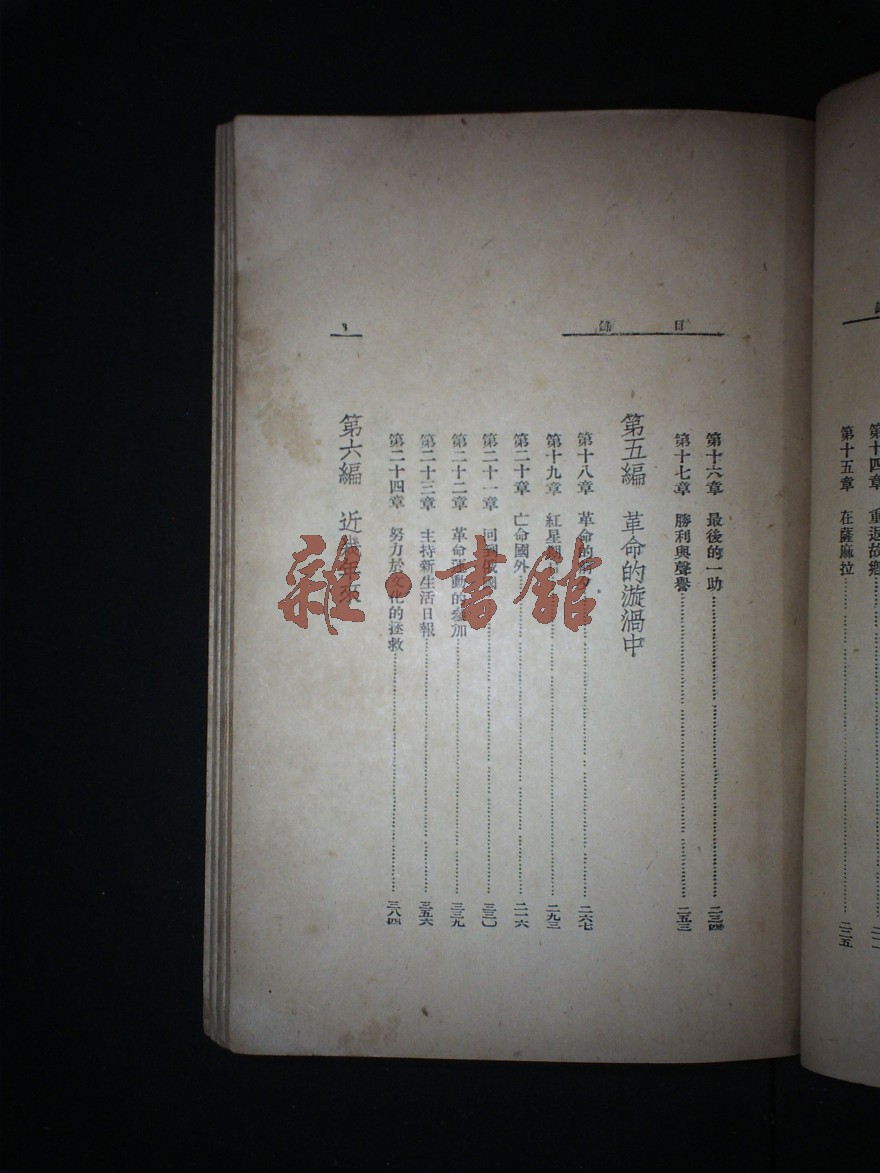 第十四章 重返故鄉
第十五章 在薩麻拉 二二五
目錄
第十六章 最後的一助 二三四
第十七章 勝利與聲譽 二五三
第五編 革命的漩渦中
第十八章 革命的 二六七
第十九章 紅星期 二九三
第二十章 亡命國外 二一六
第二十一章 回到俄國 三三〇
第二十二章 革命運動的參加 三三九
第二十三章 主持新生活日報 三五六
第二十四章 努力於文化的拯救 三八四
第六編 近幾年來
雜·書館